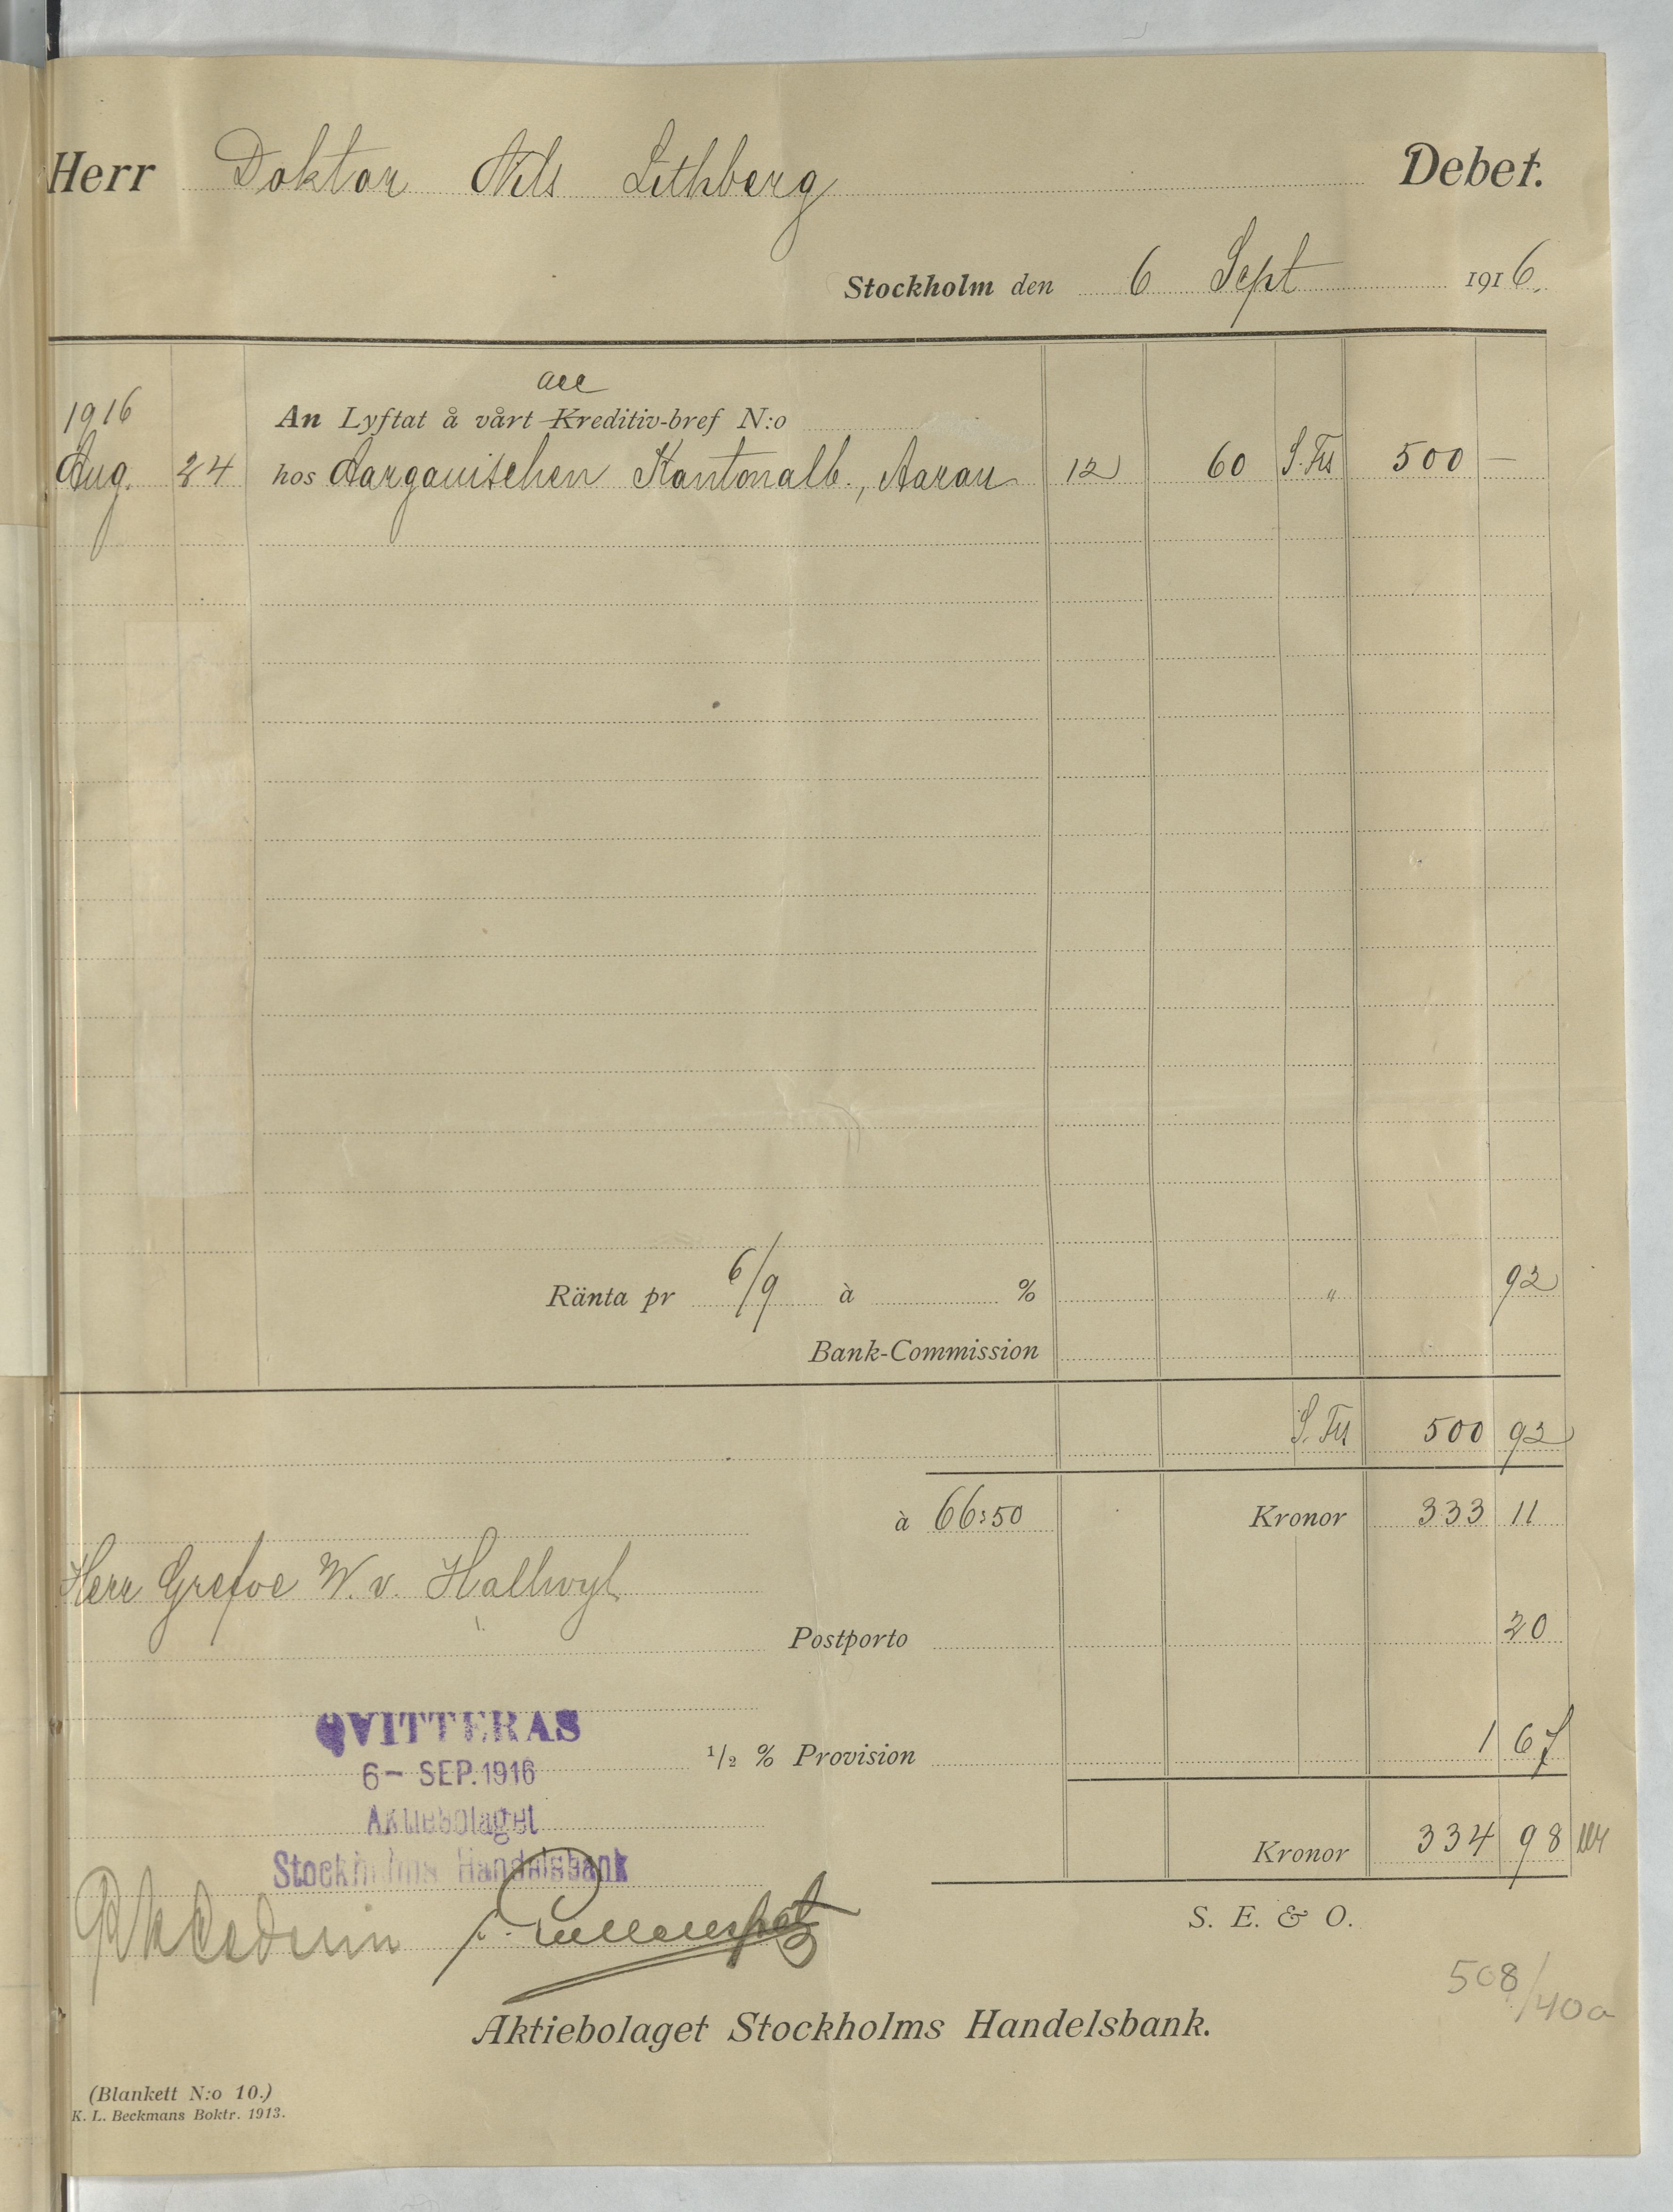 Herr Doktor Nils Lithberg Debet.
Stockholm den 6 Sept 1916.
acc
1916 An Lyftat å vårt Kreditiv-bref N:o
Aug. 24 hos Aargauischen Kantonalb., Aarau 12 60 S. Frs 500 —
Ränta pr 6/9 à % " 92
Bank-Commission
S. Frs 500 92
à 66:50 Kronor 333 11
Herr Grefve W. v. Hallwyl
Postporto 20
QVITTERAS
1/2 % Provision 1 67
6- SEP. 1916
Aktiebolaget
Kronor 334 98
Stockholms Handelsbank
S. E. & O.
508/40a
Aktiebolaget Stockholms Handelsbank.
(Blankett N:o 10.)
K. L. Beckmans Boktr. 1913.